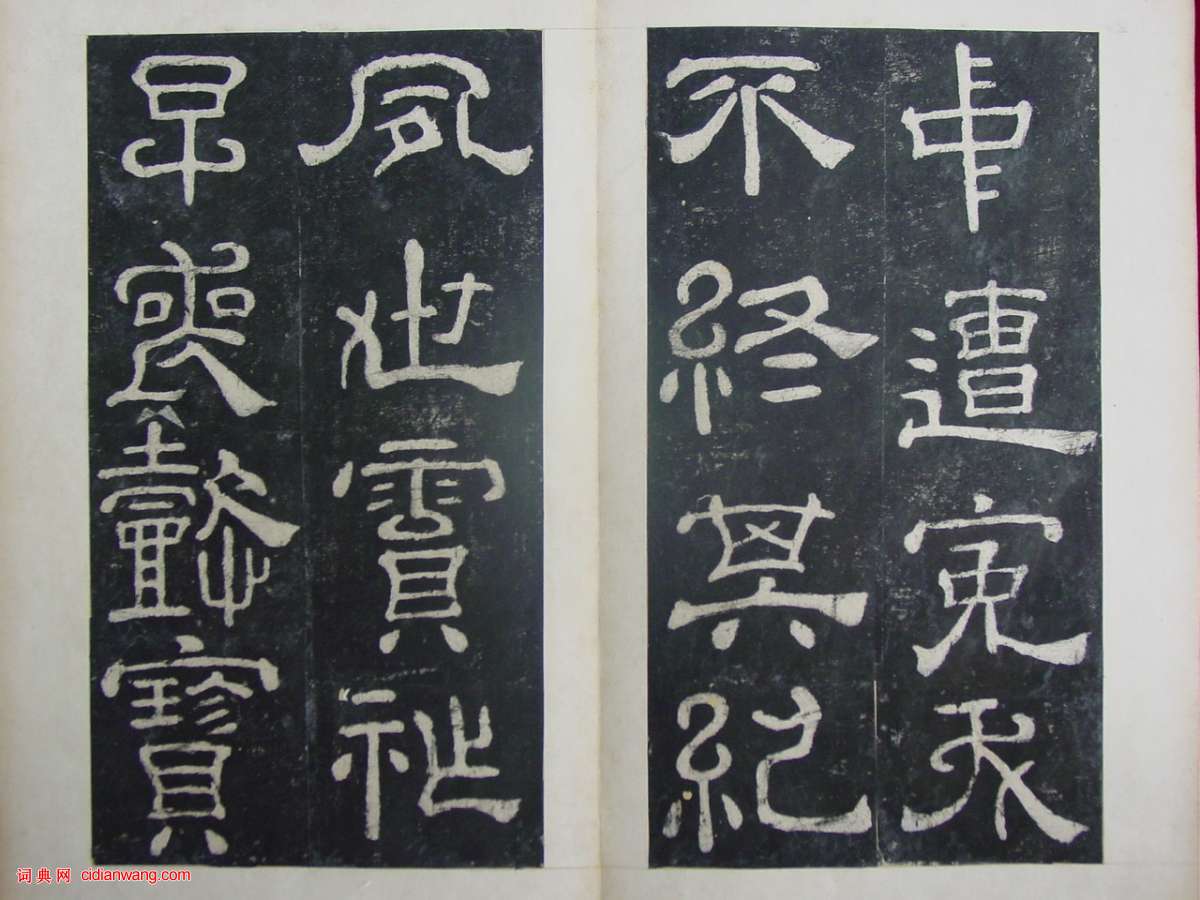 中遭冤夭
不終其紀
夙世霣祉
早喪懿寶
词典网 cidianwang.com